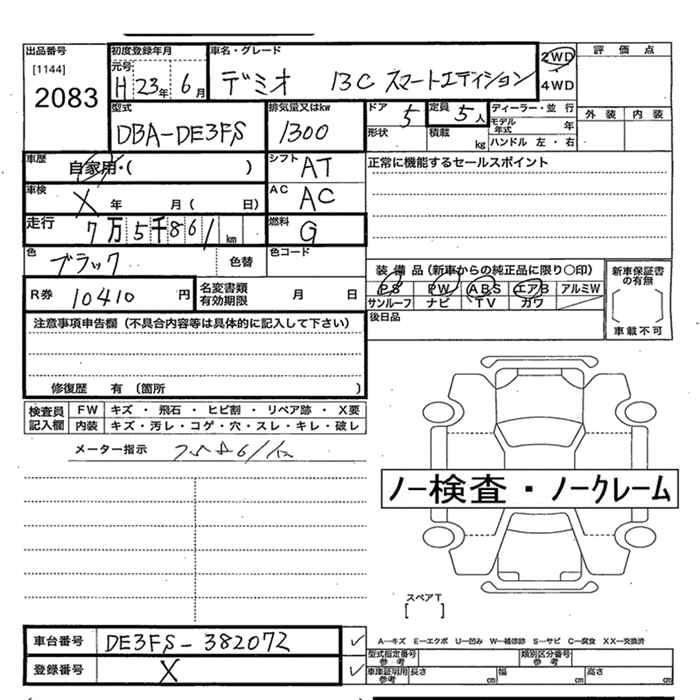 出品番号 初度登録年月 車名・グレード 2WD 評価点
[1144] 元号
2083 H 23年 6月 デミオ 13C スマートエディション 4WD
型式 排気量又はkw ドア 定員 ディーラー・並行 外装 内装
DBA-DE3FS 1300 5 5人 モデル年式 年
形状 積載 kg ハンドル 左・右
車歴 自家用・( ) シフト AT 正常に機能するセールスポイント
車検 X 年 月( 日) AC AC
走行 7万5千861km 燃料 G
色 ブラック 色替 色コード
装備品(新車からの純正品に限り○印) 新車保証書の有無
R券 10410円 名変書類有効期限 月 日 PS PW ABS エアB アルミW
サンルーフ ナビ TV カワ [ ]
注意事項申告欄(不具合内容等は具体的に記入して下さい) 後日品 車載不可
修復歴 有(箇所 )
検査員記入欄 FW キズ・飛石・ヒビ割・リペア跡・X要
内装 キズ・汚レ・コゲ・穴・スレ・キレ・破レ
メーター指示
ノー検査・ノークレーム
スペアT
[ ]
車台番号 DE3FS-382072 ✓ A―キズ E―エクボ U―凹み W―補修跡 S―サビ C―腐食 XX―交換済
型式指定番号参考 類別区分番号参考
登録番号 X ✓ 車庫証明用参考 長さ cm 幅 cm 高さ cm